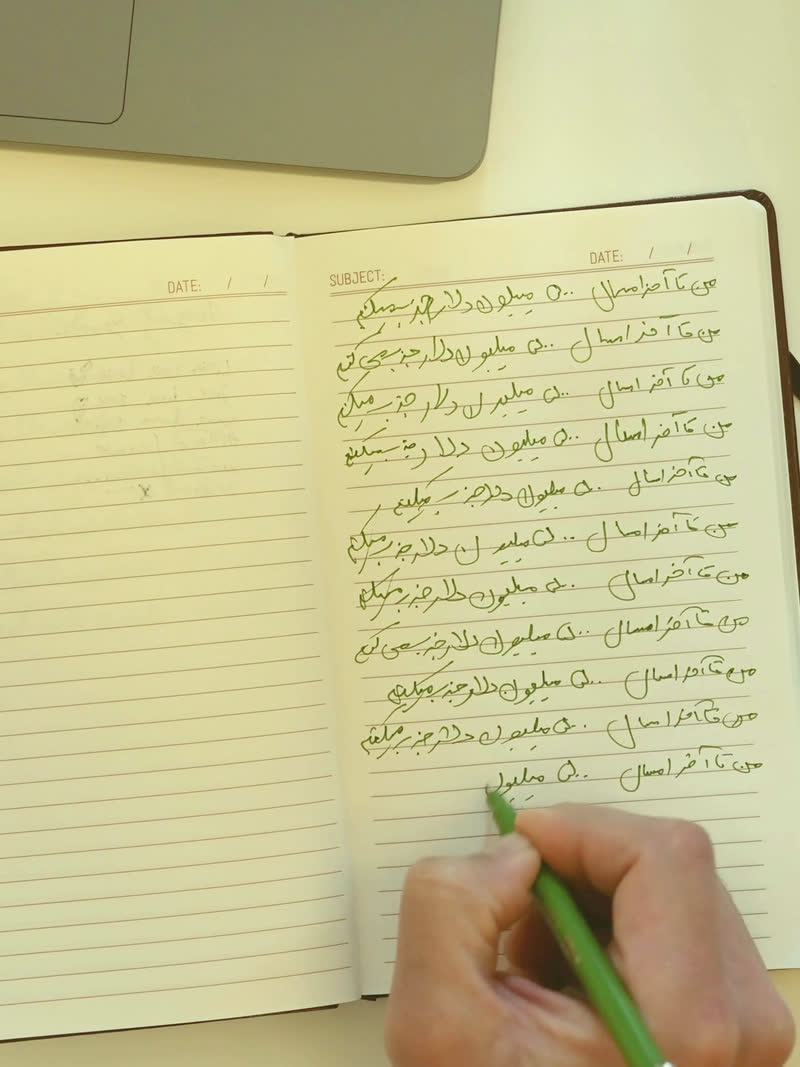 DATE: / /
SUBJECT: DATE: / /
من تا آخر امسال ۵۰۰ میلیون دلار جذب میکنم
من تا آخر امسال ۵۰۰ میلیون دلار جذب می کنم
من تا آخر امسال ۵۰۰ میلیون دلار جذب میکنم
من تا آخر امسال ۵۰۰ میلیون دلار جذب میکنم
من تا آخر امسال ۵۰۰ میلیون دلار جذب میکنم
من تا آخر امسال ۵۰۰ میلیون دلار جذب میکنم
من تا آخر امسال ۵۰۰ میلیون دلار جذب میکنم
من تا آخر امسال ۵۰۰ میلیون دلار جذب می کنم
من تا آخر امسال ۵۰۰ میلیون دلار جذب میکنم
من تا آخر امسال ۵۰۰ میلیون دلار جذب میکنم
من تا آخر امسال ۵۰۰ میلیون